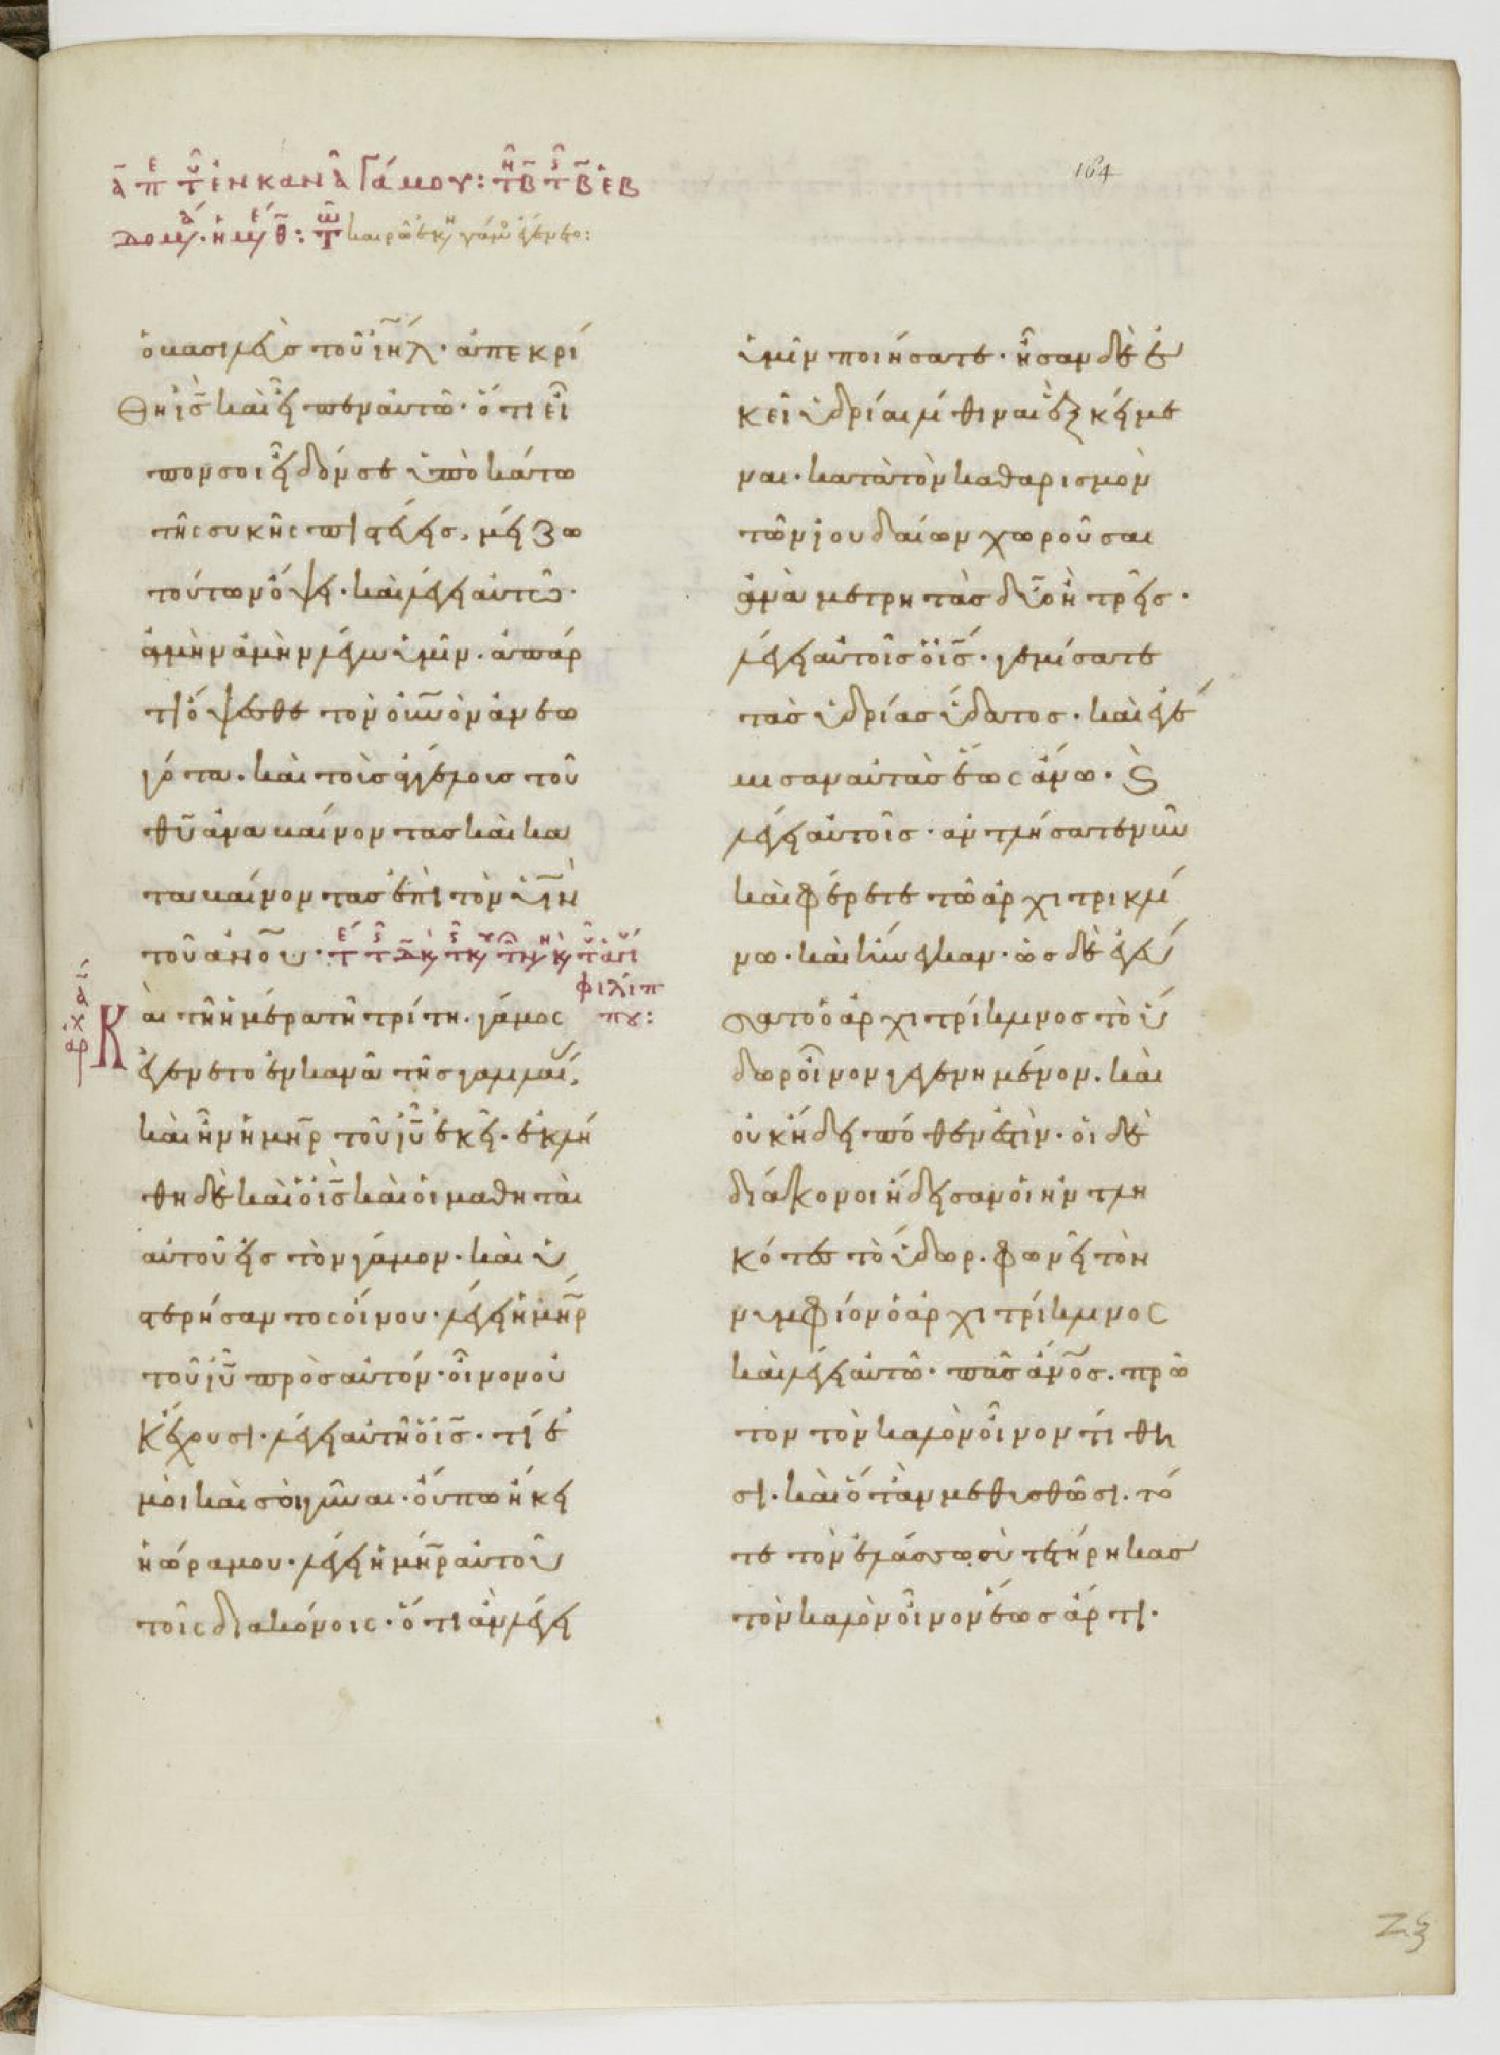 α περὶ τοῦ ἐν κανᾶ Γάμου: τῆ β τῆς β ἑβ
δομα. ἡμε θ: Τῶ καιρῶ ἐκεί γάμος ἐγένετο:
164
ὁ βασιλεὺς τοῦ ἰηλ· ἀπεκρί
θη ἰς καὶ εἶπεν αὐτῶ· ὅτι εἶ
πον σοι εἶδόν σε ὑπὸ κάτω
τῆς συκῆς πιστεύεις. μείζω
τούτων ὄψει. καὶ λέγει αὐτῶ·
ἀμὴν ἀμὴν λέγω ὑμῖν. ἀπάρ
τι ὄψεσθε τὸν οὐνὸν ἀνεω
γότα. καὶ τοὺς ἀγγέλους τοῦ
θυ ἀναβαίνοντας καὶ κα
ταβαίνοντας ἐπὶ τὸν υἱὸν
τοῦ ἀνου·
φιλίπ
που:
ἀρχ
Καὶ τῆ ἡμέρα τῆ τρίτη. γάμος
ἐγένετο ἐν κανᾶ τῆς γαλιλαί.
καὶ ἦν ἡ μηρ τοῦ ἰυ ἐκεῖ. ἐκλή
θη δὲ καὶ ὁ ἰς καὶ οἱ μαθηταὶ
αὐτοῦ εἰς τὸν γάμον. καὶ ὑ
στερήσαντος οἴνου. λέγει ἡ μηρ
τοῦ ἰυ πρὸς αὐτόν· οἶνον οὐ
κ ἔχουσι. λέγει αὐτῆ ὁ ις. τί ἐ
μοὶ καὶ σοὶ γύναι. οὔπω ἥκει
ἡ ὥρα μου. λέγει ἡ μηρ αὐτοῦ
τοῖς διακόνοις· ὅτι ἂν λέγει
ὑμῖν ποιήσατε. ἦσαν δὲ ἐ
κεῖ ὑδρίαι λίθιναι ἓξ κείμε
ναι. κατὰ τὸν καθαρισμὸν
τῶν ἰουδαίων χωροῦσαι
ἀνὰ μετρητὰς δύο ἢ τρεῖς.
λέγει αὐτοῖς ὁ ις. γεμίσατε
τὰς ὑδρίας ὕδατος. καὶ ἐγέ
μισαν αὐτὰς ἕως ἄνω. καὶ
λέγει αὐτοῖς. ἀντλήσατε νῦν
καὶ φέρετε τῶ ἀρχιτρικλί
νω. καὶ ἤνεγκαν. ὡς δὲ ἐγεύ
σατο ὁ ἀρχιτρίκλινος τὸ ὕ
δωρ οἶνον γεγενημένον. καὶ
οὐκ ἤδει πόθεν ἐστίν. οἱ δὲ
διάκονοι ἤδεισαν οἱ ἠντλη
κότες τὸ ὕδωρ. φωνεῖ τὸν
νυμφίον ὁ ἀρχιτρίκλινος
καὶ λέγει αὐτῶ. πᾶς ἄνος. πρῶ
τον τὸν καλὸν οἶνον τίθη
σι. καὶ ὅταν μεθυσθῶσι. τό
τε τὸν ἐλάσσω. σὺ τετήρηκας
τὸν καλὸν οἶνον ἕως ἄρτι.